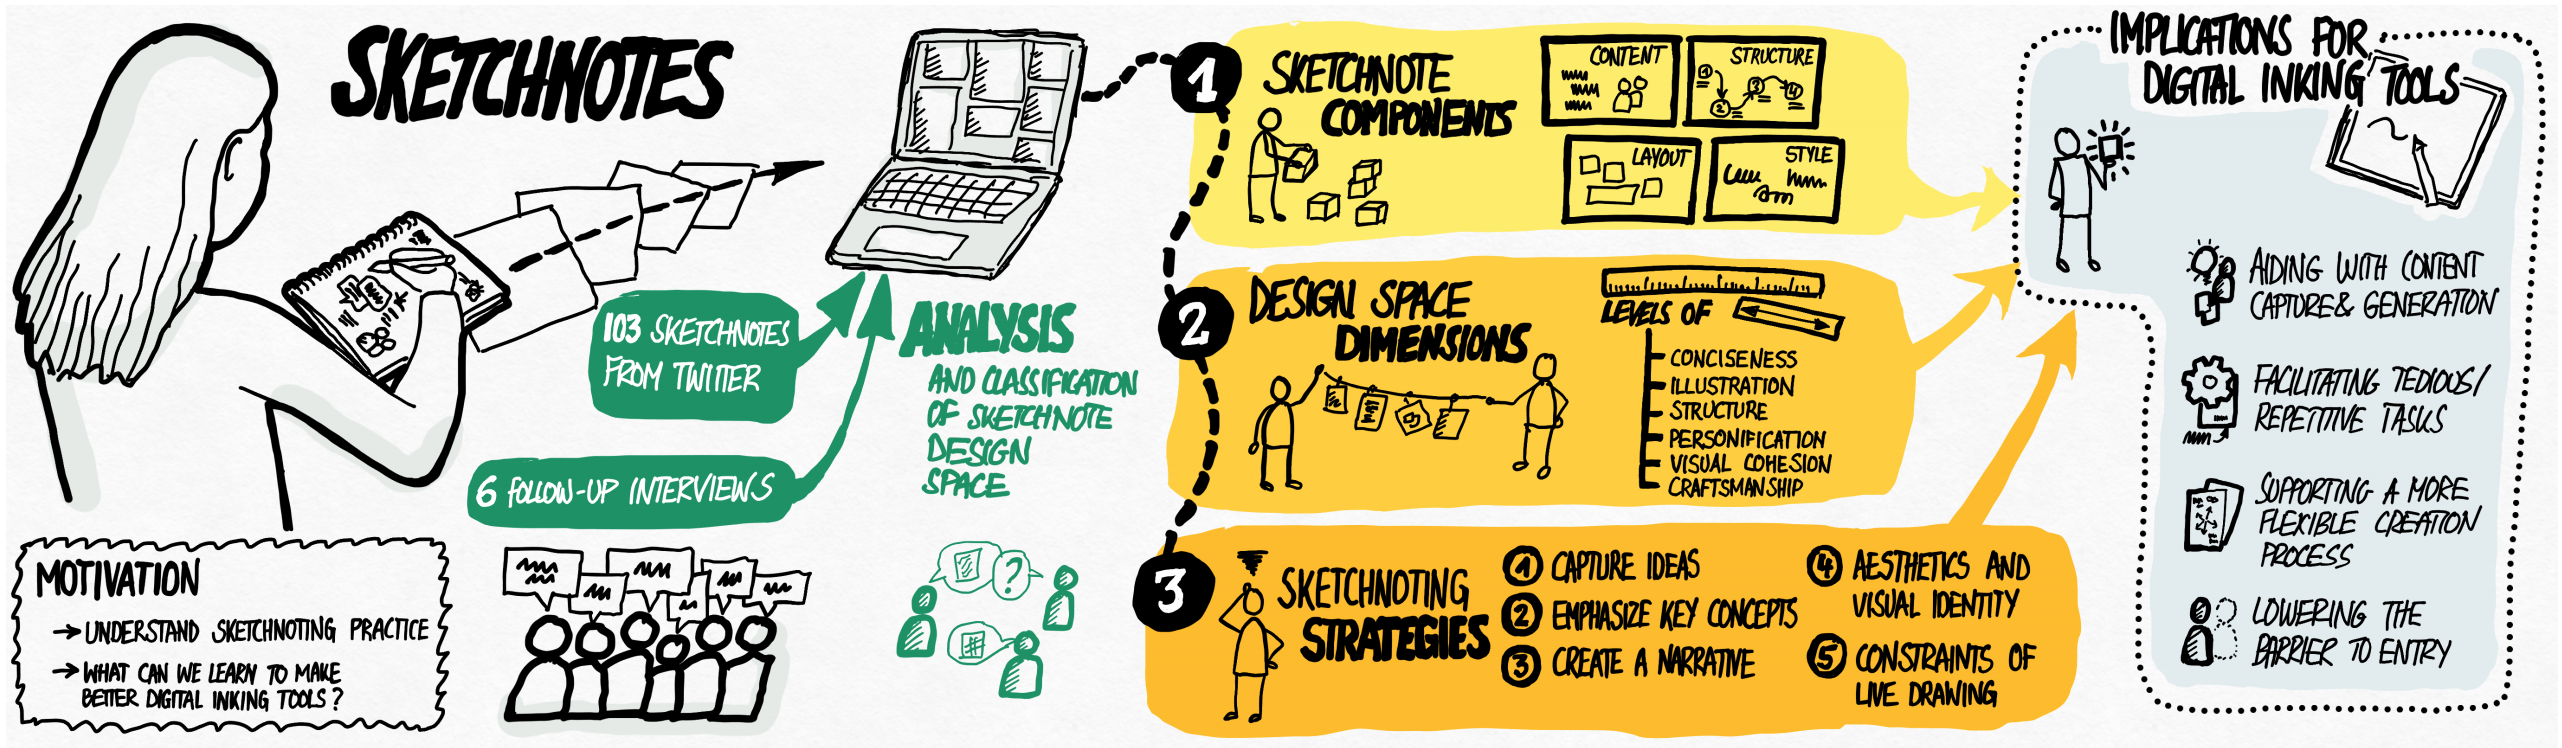 SKETCHNOTES
103 SKETCHNOTES
FROM TWITTER
6 FOLLOW-UP INTERVIEWS
MOTIVATION
→ UNDERSTAND SKETCHNOTING PRACTICE
→ WHAT CAN WE LEARN TO MAKE
BETTER DIGITAL INKING TOOLS?
ANALYSIS
AND CLASSIFICATION
OF SKETCHNOTE
DESIGN
SPACE
?
1
SKETCHNOTE
COMPONENTS
CONTENT
STRUCTURE
1
2
3
4
LAYOUT
STYLE
2
DESIGN SPACE
DIMENSIONS
LEVELS OF
CONCISENESS
ILLUSTRATION
STRUCTURE
PERSONIFICATION
VISUAL COHESION
CRAFTSMANSHIP
3
SKETCHNOTING
STRATEGIES
1 CAPTURE IDEAS
2 EMPHASIZE KEY CONCEPTS
3 CREATE A NARRATIVE
4 AESTHETICS AND
VISUAL IDENTITY
5 CONSTRAINTS OF
LIVE DRAWING
IMPLICATIONS FOR
DIGITAL INKING TOOLS
AIDING WITH CONTENT
CAPTURE & GENERATION
FACILITATING TEDIOUS/
REPETITIVE TASKS
SUPPORTING A MORE
FLEXIBLE CREATION
PROCESS
LOWERING THE
BARRIER TO ENTRY